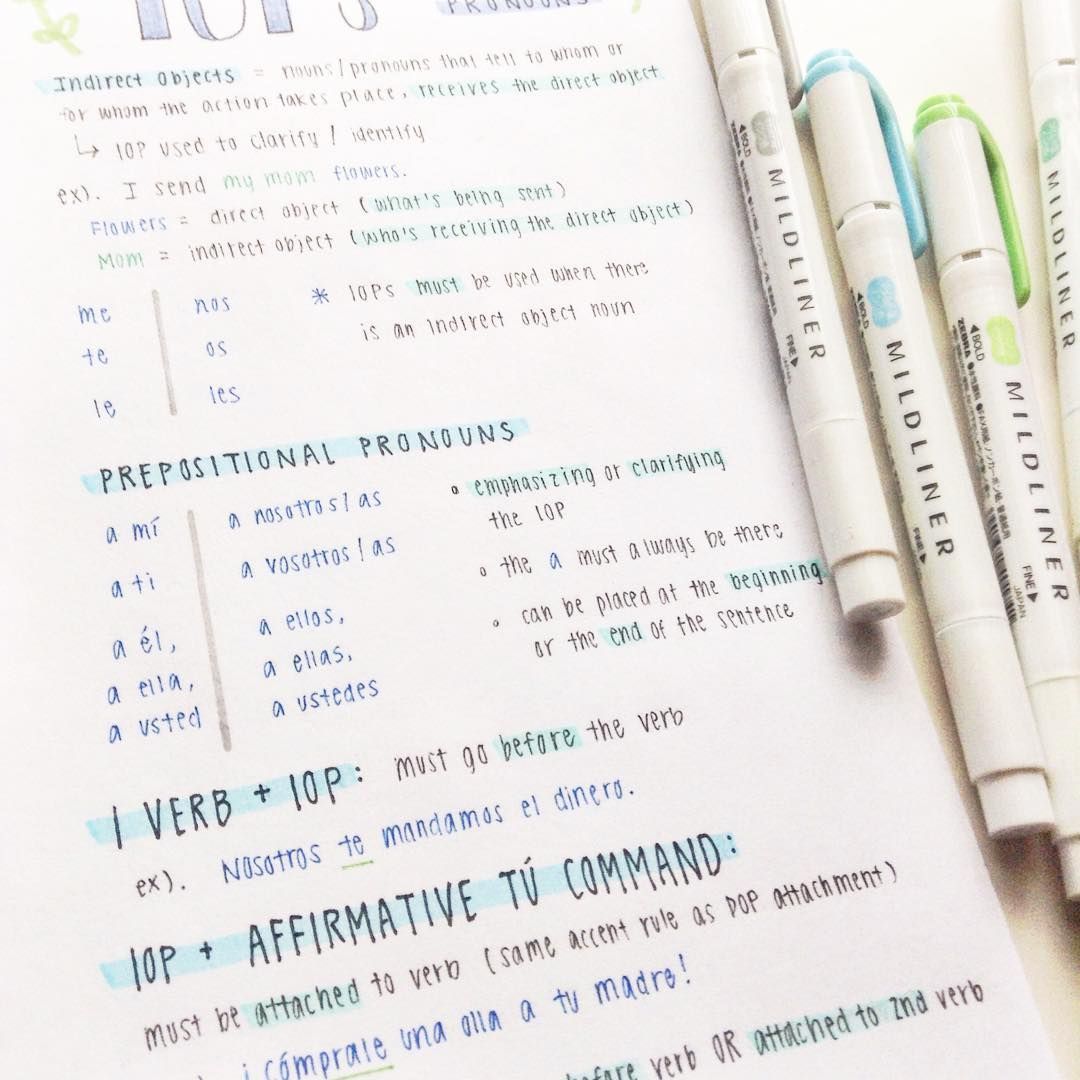 IOPs
PRONOUNS
Indirect Objects = nouns/pronouns that tell to whom or
for whom the action takes place, receives the direct object
↳ IOP used to clarify / identify
ex). I send my mom flowers.
Flowers = direct object (what's being sent)
Mom = indirect object (who's receiving the direct object)
me nos
te os
le les
* IOPs must be used when there
is an indirect object noun
PREPOSITIONAL PRONOUNS
a mí a nosotros/as
a ti a vosotros/as
a él, a ellos,
a ella, a ellas,
a usted a ustedes
emphasizing or clarifying
the IOP
the a must always be there
can be placed at the beginning
or the end of the sentence
1 VERB + IOP: must go before the verb
ex). Nosotros te mandamos el dinero.
IOP + AFFIRMATIVE TÚ COMMAND:
must be attached to verb (same accent rule as DOP attachment)
¡cómprale una olla a tu madre!
before verb OR attached to 2nd verb
◀BOLD
ZEBRA
MILDLINER
FINE▶
JAPAN
◀BOLD
MILDLINER
FINE▶
◀BOLD
ZEBRA
MILDLINER
FINE▶
JAPAN
MILDLINER